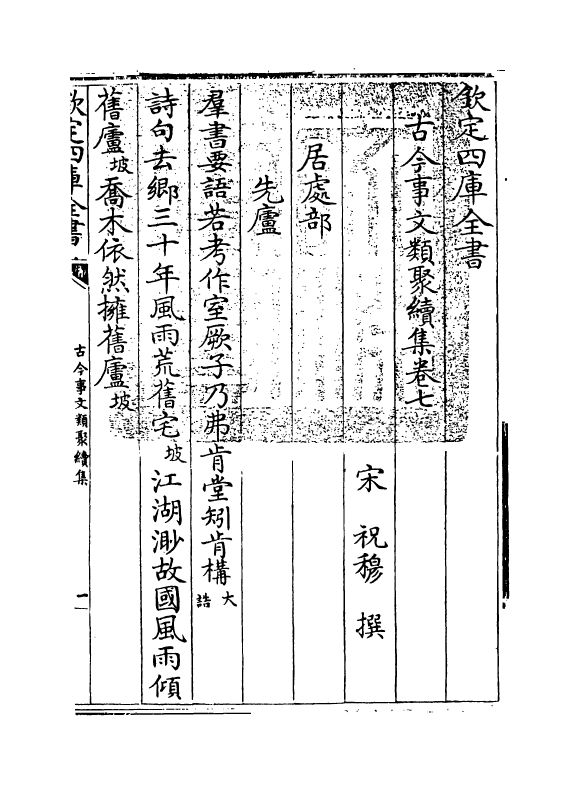 欽定四庫全書
古今事文類聚續集卷七
宋 祝穆 撰
居處部
先廬
羣書要語若考作室厥子乃弗肯堂矧肯構大誥
詩句去鄉三十年風雨荒舊宅坡江湖渺故國風雨傾
舊廬坡喬木依然擁舊廬坡
欽定四庫全書
古今事文類聚續集
一